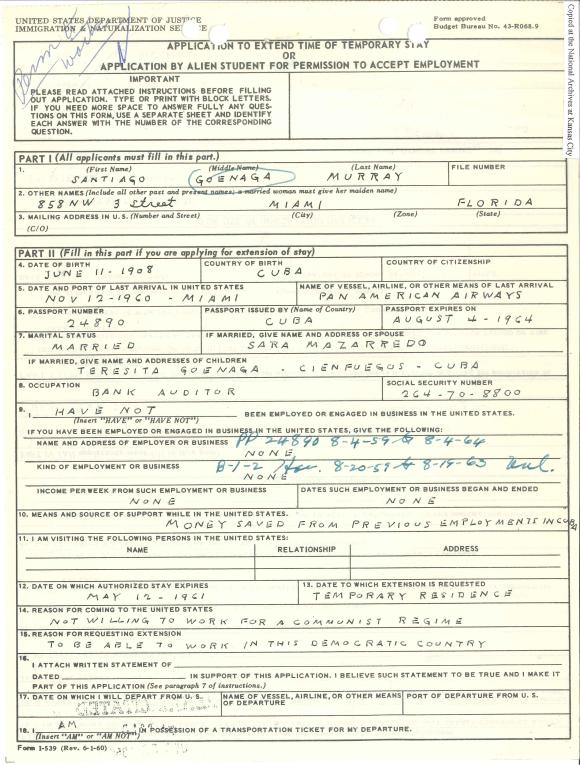 UNITED STATES DEPARTMENT OF JUSTICE
IMMIGRATION & NATURALIZATION
Form approved
Budget Bureau No. 43-R068.9
Copied at the National Archives at Kansas City
APPLICATION TO EXTEND TIME OF TEMPORARY STAY
OR
APPLICATION BY ALIEN STUDENT FOR PERMISSION TO ACCEPT EMPLOYMENT
IMPORTANT
PLEASE READ ATTACHED INSTRUCTIONS BEFORE FILLING
OUT APPLICATION. TYPE OR PRINT WITH BLOCK LETTERS.
IF YOU NEED MORE SPACE TO ANSWER FULLY ANY QUES-
TIONS ON THIS FORM, USE A SEPARATE SHEET AND IDENTIFY
EACH ANSWER WITH THE NUMBER OF THE CORRESPONDING
QUESTION.
PART I (All applicants must fill in this part.)
1. (First Name) (Middle Name) (Last Name) FILE NUMBER
SANTIAGO GOENAGA MURRAY
2. OTHER NAMES (Include all other past and present names; a married woman must give her maiden name)
858 NW 3 street MIAMI FLORIDA
3. MAILING ADDRESS IN U.S. (Number and Street) (City) (Zone) (State)
(C/O)
PART II (Fill in this part if you are applying for extension of stay)
4. DATE OF BIRTH COUNTRY OF BIRTH COUNTRY OF CITIZENSHIP
JUNE 11-1908 CUBA
5. DATE AND PORT OF LAST ARRIVAL IN UNITED STATES NAME OF VESSEL, AIRLINE, OR OTHER MEANS OF LAST ARRIVAL
NOV 12-1960 - MIAMI PAN AMERICAN AIRWAYS
6. PASSPORT NUMBER PASSPORT ISSUED BY (Name of Country) PASSPORT EXPIRES ON
24890 CUBA AUGUST 4-1964
7. MARITAL STATUS IF MARRIED, GIVE NAME AND ADDRESS OF SPOUSE
MARRIED SARA MAZARREDO
IF MARRIED, GIVE NAME AND ADDRESSES OF CHILDREN
TERESITA GOENAGA - CIENFUEGOS - CUBA
8. OCCUPATION SOCIAL SECURITY NUMBER
BANK AUDITOR 264-70-8800
9. I HAVE NOT BEEN EMPLOYED OR ENGAGED IN BUSINESS IN THE UNITED STATES.
(Insert "HAVE" or "HAVE NOT")
IF YOU HAVE BEEN EMPLOYED OR ENGAGED IN BUSINESS IN THE UNITED STATES, GIVE THE FOLLOWING:
NAME AND ADDRESS OF EMPLOYER OR BUSINESS PP 24890 8-4-59 to 8-4-64
NONE
KIND OF EMPLOYMENT OR BUSINESS B-1-2 Hav. 8-20-59 to 8-19-63
NONE
INCOME PER WEEK FROM SUCH EMPLOYMENT OR BUSINESS DATES SUCH EMPLOYMENT OR BUSINESS BEGAN AND ENDED
NONE NONE
10. MEANS AND SOURCE OF SUPPORT WHILE IN THE UNITED STATES.
MONEY SAVED FROM PREVIOUS EMPLOYMENTS IN CUBA
11. I AM VISITING THE FOLLOWING PERSONS IN THE UNITED STATES:
NAME RELATIONSHIP ADDRESS
12. DATE ON WHICH AUTHORIZED STAY EXPIRES 13. DATE TO WHICH EXTENSION IS REQUESTED
MAY 12-1961 TEMPORARY RESIDENCE
14. REASON FOR COMING TO THE UNITED STATES
NOT WILLING TO WORK FOR A COMMUNIST REGIME
15. REASON FOR REQUESTING EXTENSION
TO BE ABLE TO WORK IN THIS DEMOCRATIC COUNTRY
16.
I ATTACH WRITTEN STATEMENT OF
DATED IN SUPPORT OF THIS APPLICATION. I BELIEVE SUCH STATEMENT TO BE TRUE AND I MAKE IT
PART OF THIS APPLICATION (See paragraph 7 of instructions.)
17. DATE ON WHICH I WILL DEPART FROM U.S. NAME OF VESSEL, AIRLINE, OR OTHER MEANS OF DEPARTURE PORT OF DEPARTURE FROM U.S.
18. I AM IN POSSESSION OF A TRANSPORTATION TICKET FOR MY DEPARTURE.
(Insert "AM" or "AM NOT")
Form I-539 (Rev. 6-1-60)